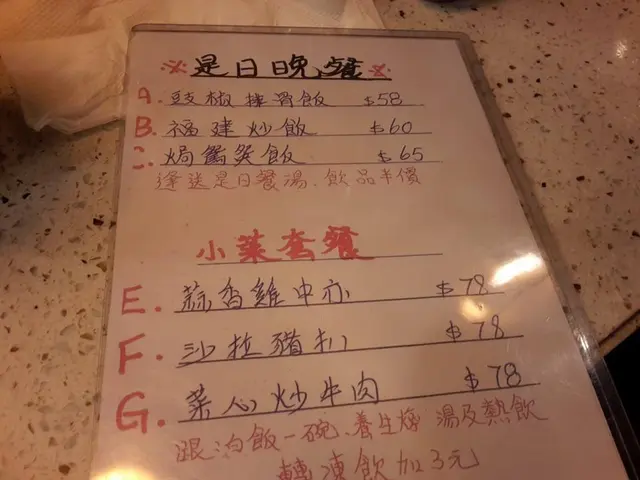 ※是日晚餐※
A. 豉椒排骨飯 $58
B. 福建炒飯 $60
C. 焗鴛鴦飯 $65
逢送是日餐湯、飲品半價
小菜套餐
E. 蒜香雞中亦 $78
F. 沙拉豬扒 $78
G. 菜心炒牛肉 $78
跟:泊飯一碗、養生燉湯及熱飲
轉凍飲加3元